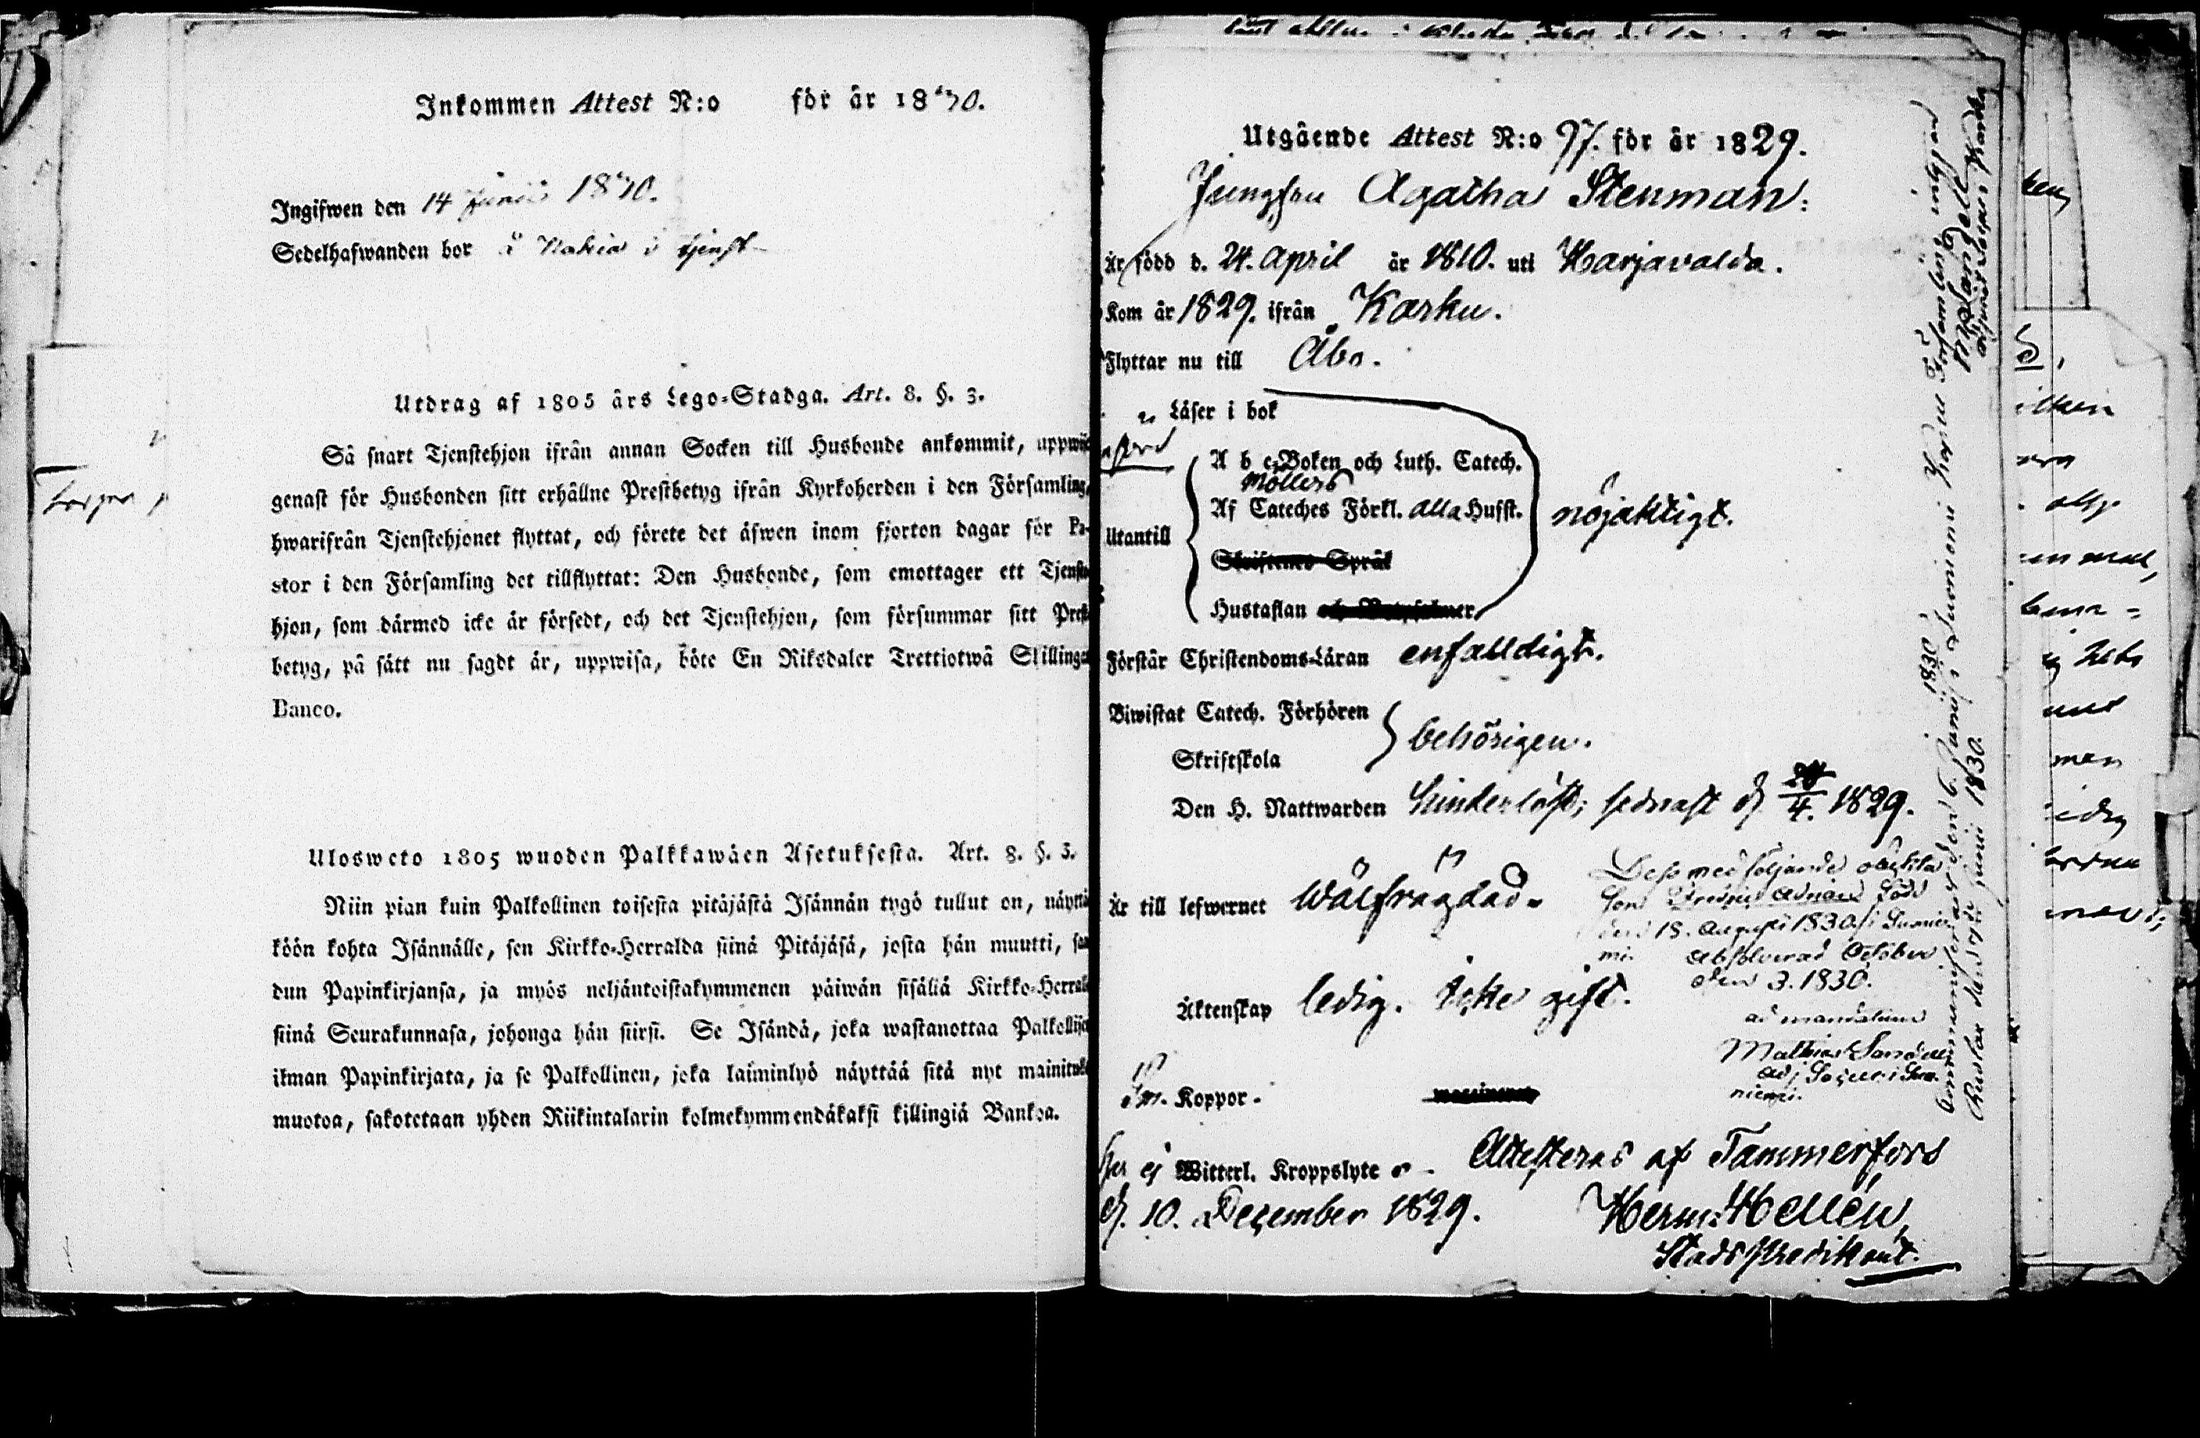 Inkommen Attest N:o för år 1830.
Ingifwen den 14 Junii 1830.
Sedelhafwanden bor å Nokia i tjenst
Utdrag af 1805 års Lego-Stadga. Art. 8. §. 3.
Så snart Tjenstehjon ifrån annan Socken till Husbonde ankommit, uppwise
genast för Husbonden sitt erhållne Prestbetyg ifrån Kyrkoherden i den Församling,
hwarifrån Tjenstehjonet flyttat, och förete det äfwen inom fjorton dagar för Pa-
stor i den Församling det tillflyttat: Den Husbonde, som emottager ett Tjenste-
hjon, som därmed icke är försedt, och det Tjenstehjon, som försummar sitt Prest-
betyg, på sätt nu sagdt är, uppwisa, böte En Riksdaler Trettiotwå Skillingar
Banco.
Ulosweto 1805 wuoden Palkkawäen Asetuksesta. Art. 8. §. 3.
Niin pian kuin Palkollinen toisesta pitäjästä Isännän tygö tullut on, näyttä-
köön kohta Isännälle, sen Kirkko-Herralda siinä Pitäjäsä, josta hän muutti,
dun Papinkirjansa, ja myös neljäntoistakymmenen päiwän sisällä Kirkko-Herralle
siinä Seurakunnasa, johonga hän siirsi. Se Isändä, joka wastanottaa Palkollisen
ilman Papinkirjata, ja se Palkollinen, joka laiminlyö näyttää sitä nyt mainitulla
muotoa, sakotetaan yhden Riikintalarin kolmekymmendäkaksi killingiä Bankoa.
Utgående Attest N:o 97. för är 1829.
Jungfru Agatha Stenman:
Är född d. 24. April år 1810. uti Harjavalda.
Kom år 1829. ifrån Karku.
Flyttar nu till Åbo.
Läser i bok
A b c-Boken och Luth. Catech.
Möllers
Af Cateches Förkl. alla Husst. nöjaktigt.
Utantill
Skriftenes Språk
Hustaflan
Förstår Christendoms-Läran enfalldigt.
Biwistat Catech. Förhören
behörigen.
Skriftskola
Den H. Nattwarden hinderlöst; sednast d. 4. 1829.
Är till lefwernet wälfrägdad.
Dess medföljande oäkta
Son Adrian född
den 18. Augusti 1830 i Suonie-
mi. absolverad October
den 3. 1830.
ad mandatum
Äktenskap ledig. Icke gift.
Mathias
adj. Sac. uti Suo-
niemi.
Koppor.
ej Witterl. Kroppslyte. Attesteras af Tammerfors
d. 10. December 1829. Herm: Hellén,
Stads Predikant.
den 6. Junii 1830 i Suoniemi
Junii 1830.